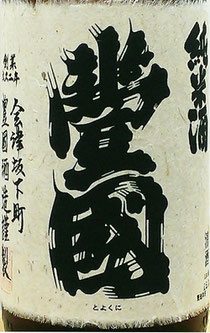 純米酒
豐國
とよくに
創業
文久二年
会津坂下町
豊國酒造謹製